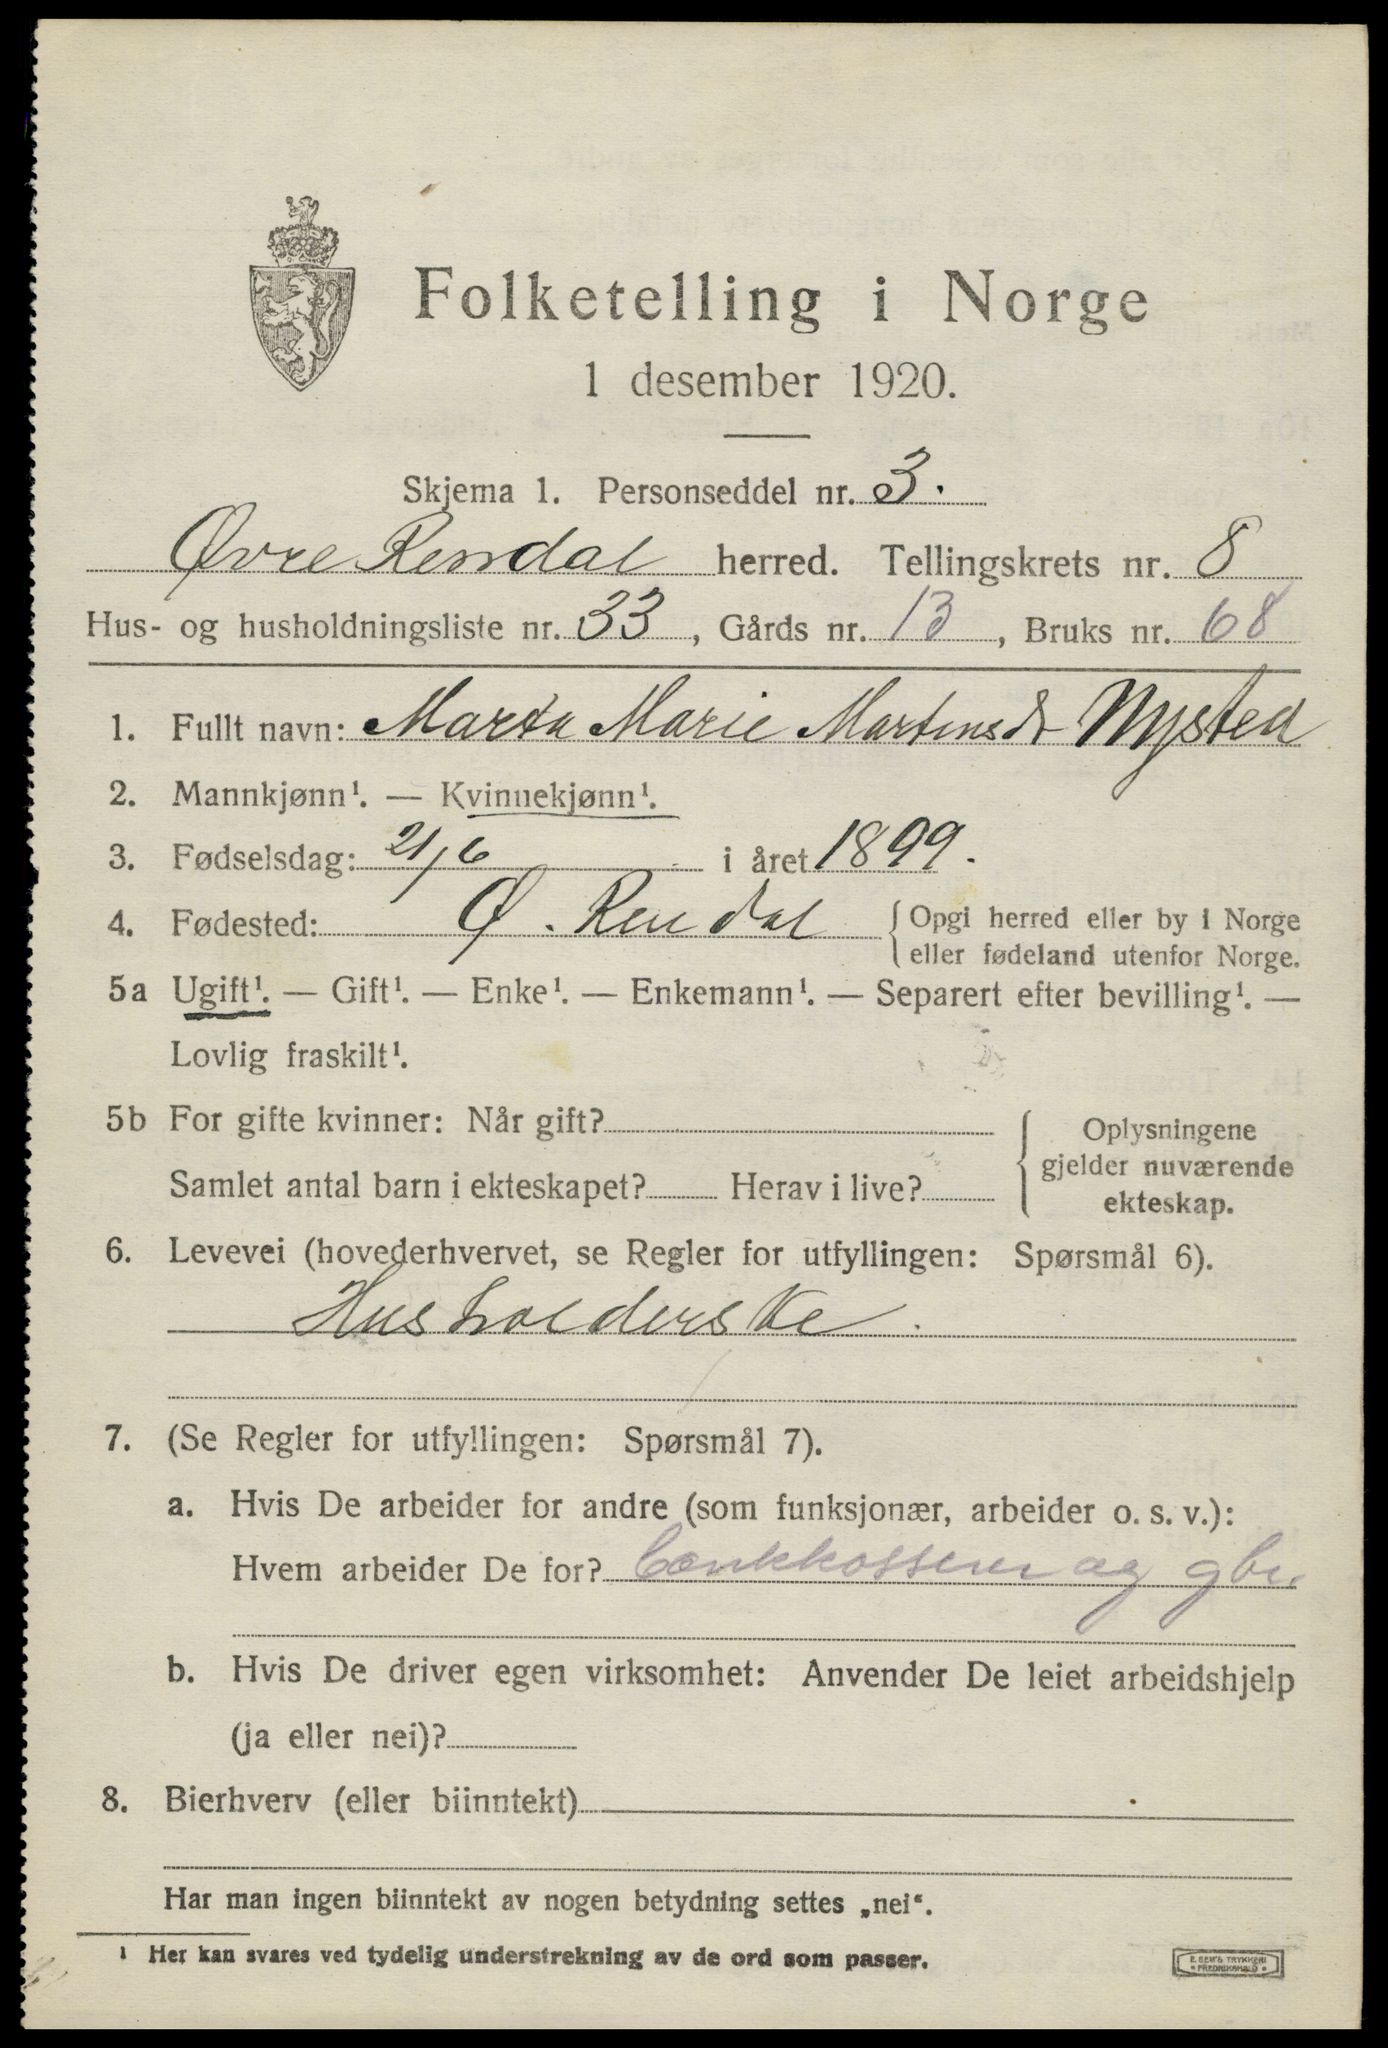 Folketelling i Norge
1 desember 1920.
Skjema 1. Personseddel nr. 3.
Øvre Rendal herred. Tellingskrets nr. 8
Hus- og husholdningsliste nr. 33, Gårds nr. 13, Bruks nr. 68
1. Fullt navn: Marta Marie Martinsdr Nysted
2. Mannkjønn¹. — Kvinnekjønn¹.
3. Fødselsdag: 21/6 i året 1899.
4. Fødested: Ø. Rendal { Opgi herred eller by i Norge
eller fødeland utenfor Norge.
5a Ugift¹. — Gift¹. — Enke¹. — Enkemann¹. — Separert efter bevilling¹. —
Lovlig fraskilt¹.
5b For gifte kvinner: Når gift? { Oplysningene
gjelder nuværende
Samlet antal barn i ekteskapet? Herav i live?
ekteskap.
6. Levevei (hovederhvervet, se Regler for utfyllingen: Spørsmål 6).
Husholderske.
7. (Se Regler for utfyllingen: Spørsmål 7).
a. Hvis De arbeider for andre (som funksjonær, arbeider o. s. v.):
Hvem arbeider De for? og gbr.
b. Hvis De driver egen virksomhet: Anvender De leiet arbeidshjelp
(ja eller nei)?
8. Bierhverv (eller biinntekt)
Har man ingen biinntekt av nogen betydning settes „nei“.
¹ Her kan svares ved tydelig understrekning av de ord som passer.
E. SEM'S TRYKKERI
• FREDRIKSHALD •